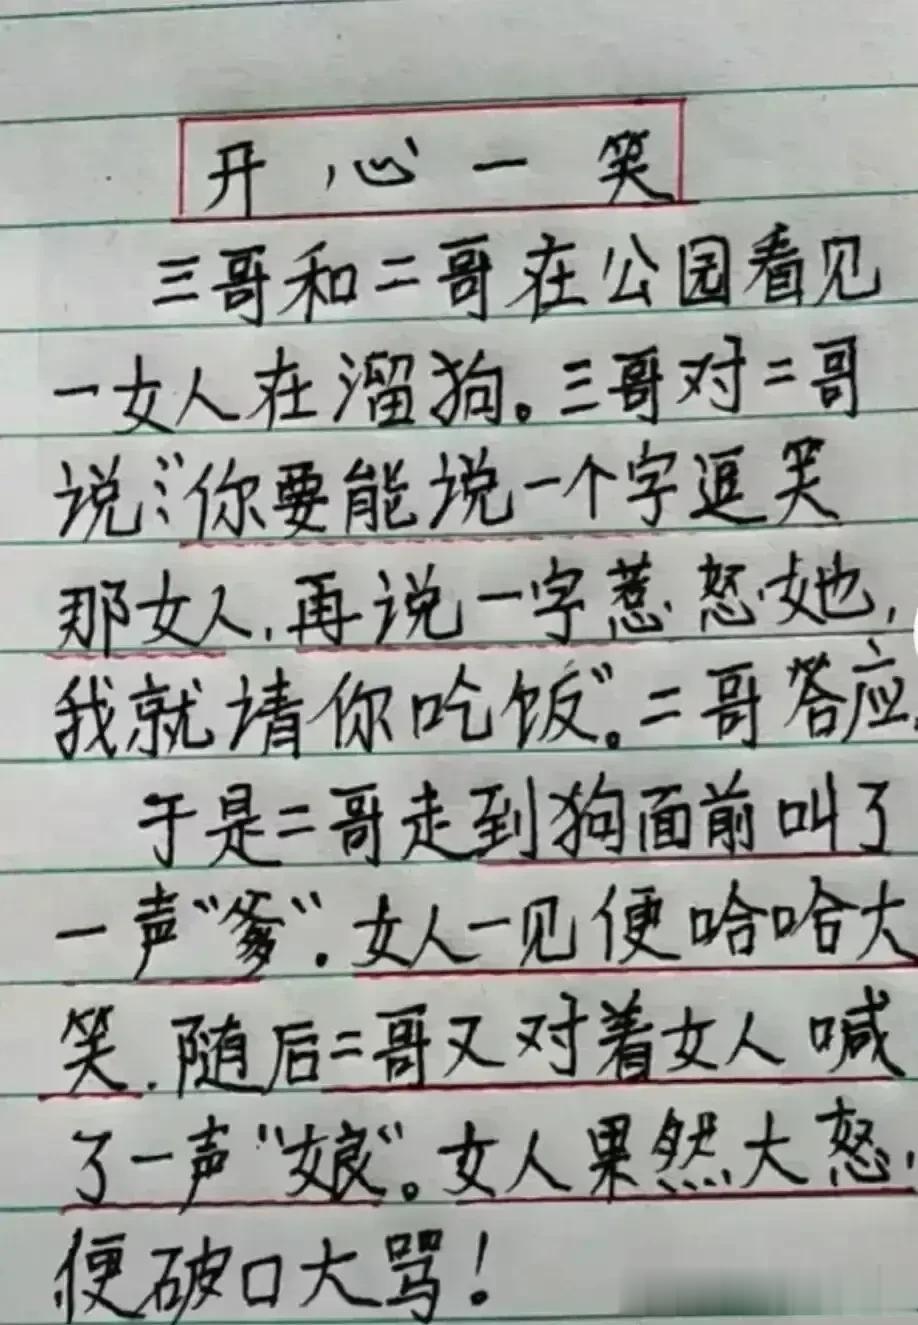 开心一笑
三哥和二哥在公园看见
一女人在溜狗。三哥对二哥
说:“你要能说一个字逗笑
那女人,再说一字惹怒她,
我就请你吃饭”。二哥答应,
于是二哥走到狗面前叫了
一声“爹”.女人一见便哈哈大
笑.随后二哥又对着女人喊
了一声“娘”。女人果然大怒,
便破口大骂!